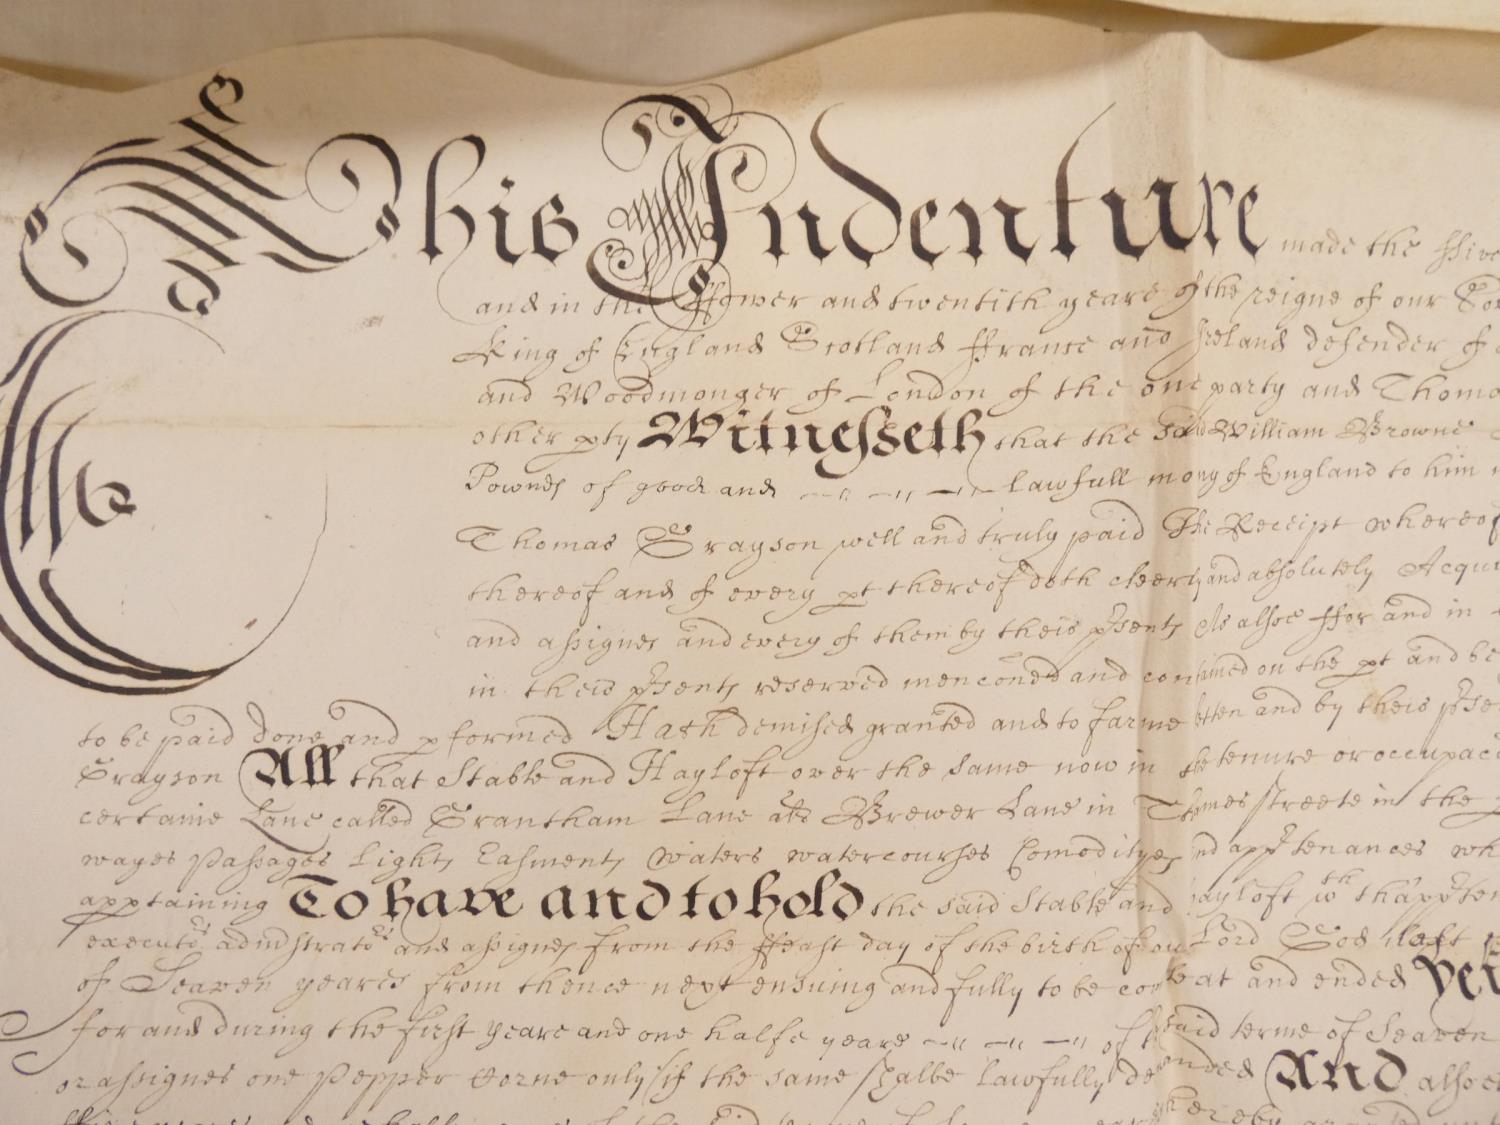 This Indenture made the ffive
and in the ffower and twentith yeare of the reigne of our
King of England Scotland ffrance and Ireland defender of
and Woodmonger of London of the one party and
other pty Witnesseth that the said William Browne
Pownds of good and lawfull mony of England to him
Thomas Grayson well and truly paid The Receipt whereof
thereof and of every pt thereof doth cleerly and absolutely
and assignes and every of them by theis psents As alsoe ffor and in
in theis psents reserved menconed and contained on the pt and
to be paid done and pformed Hath demised granted and to farme letten and by theis
Grayson All that Stable and Hayloft over the same now in the tenure or
certaine Lane called Grantham Lane als Brewer Lane in Thames streete in the
wayes Passages lights Easments waters watercourses Comodityes and apptenances
apptaining To have and to hold the said Stable and hayloft wth
executors adminstrators and assignes from the ffeast day of the birth of our Lord God last
of Seaven yeares from thence next ensuing and fully to be compleat and ended
for and during the first yeare and one halfe yeare of the said terme of Seaven
or assignes one Pepper Corne only (if the same shalbe lawfully demanded And alsoe
hereby granted